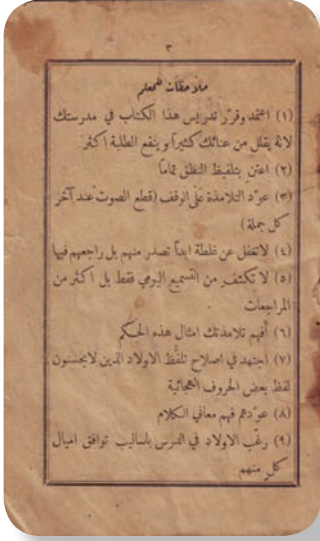 ٣
ملاحظات للمعلم
(١) اعتمد وقرّر تدريس هذا الكتاب في مدرستك
لانه يقلل من عنائك كثيراً وينفع الطلبة اكثر
(٢) اعتن بتلفيظ النطق تماما
(٣) عوّد التلامذة على الوقف (قطع الصوت عند آخر
كل جملة)
(٤) لا تغفل عن غلطة ابداً تصدر منهم بل راجعهم فيها
(٥) لا تكتف من التسميع اليومي فقط بل اكثر من
المراجعات
(٦) أفهم تلامذتك امثال هذه الحكم
(٧) اجتهد في اصلاح تلفّظ الاولاد الذين لا يحسنون
لفظ بعض الحروف الهجائية
(٨) عوّدهم فهم معاني الكلام
(٩) رغّب الاولاد في الدرس باساليب توافق اميال
كل منهم